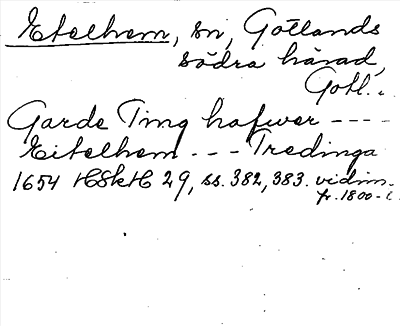 Etelhem, sn, Gotlands
södra härad,
Gotl.
Garde Ting hafwer ----
Eitelhem --- Tredinga
1654 HSkH 29, ss. 382, 383. vidim.
fr. 1800-t.